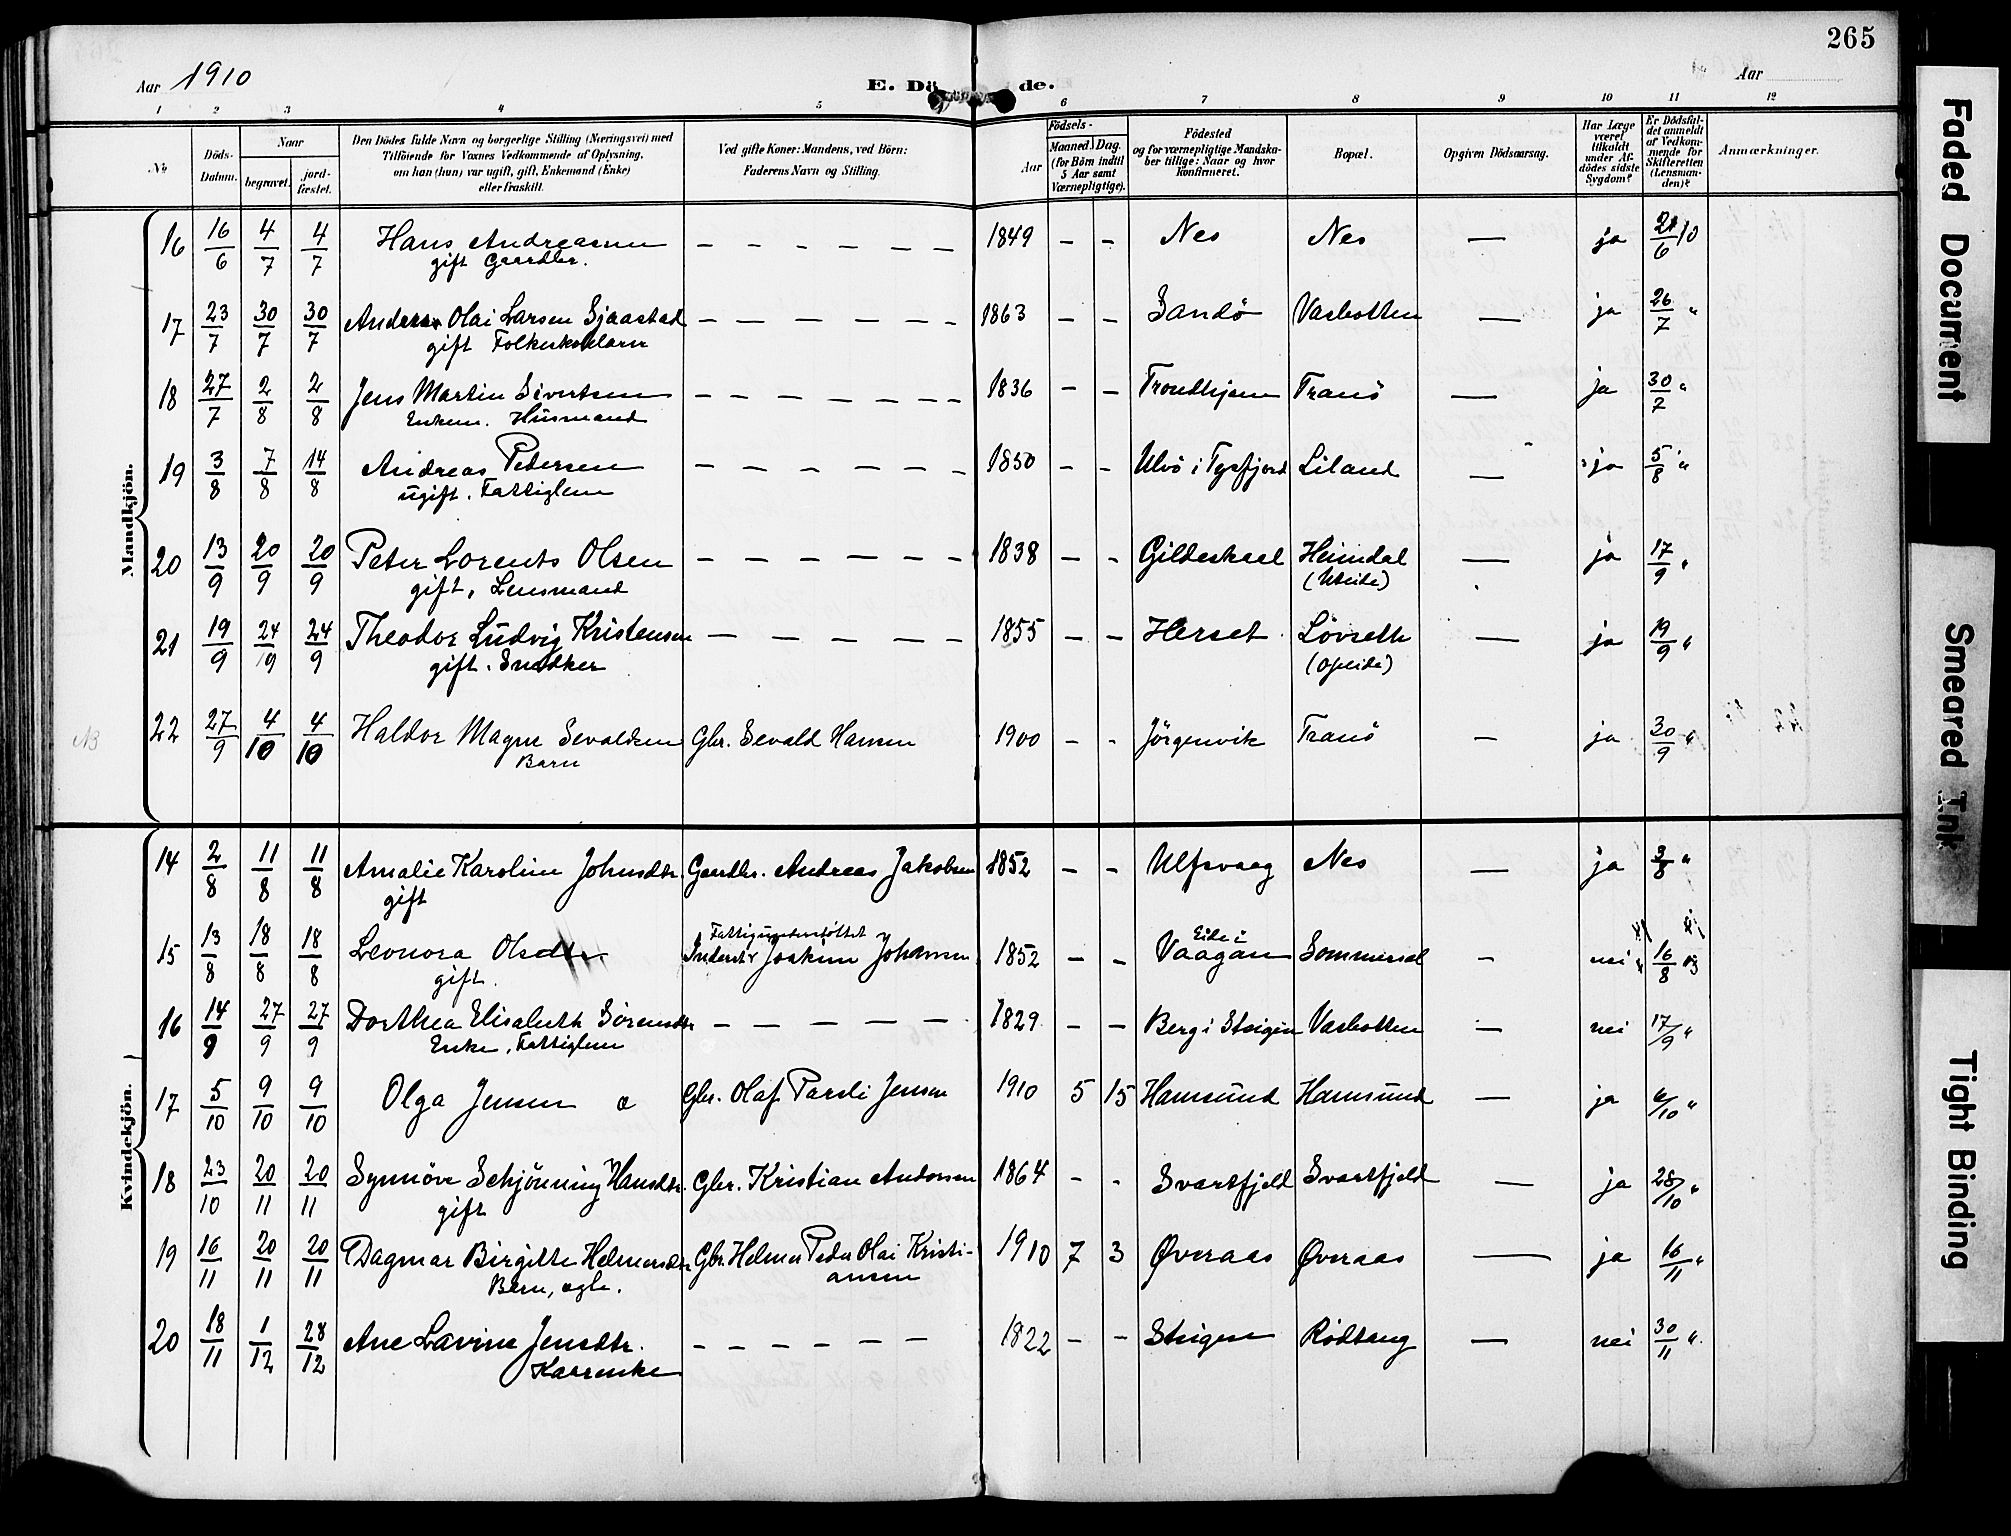 265
Aar 1910
E. Dö de.
Aar
1 2 3 4 5 6 7 8 9 10 11 12
No
Döds-Datum.
Naar
begravet.
jord-fæstet.
Den Dödes fulde Navn og borgerlige Stilling (Næringsvei) med
Tilföiende for Voxnes Vedkommende af Oplysning,
om han (hun) var ugift, gift, Enkemand (Enke)
eller fraskilt.
Ved gifte Koner: Mandens, ved Börn:
Faderens Navn og Stilling.
Födsels-
Aar
Maaned Dag.
(for Börn indtil
5 Aar samt
Værnepligtige).
Födested
og for værnepligtige Mandska-
ber tillige: Naar og hvor
Konfirmeret.
Bopæl.
Opgiven Dödsaarsag.
Har Læge
været
tilkaldt
under Af-
dödes sidste
Sygdom?
Er Dödsfal-
det anmeldt
af Vedkom-
mende for
Skifteretten
(Lensman-
den)?
Anmærkninger.
Mandkjön.
16 16/6 4/7 4/7 Hans Andreassen – – – – – – 1849 – – Nes Nes — ja 21/6 10
gift Gaardbr.
17 23/7 30/7 30/7 Anders Olai Larsen Sjaastad – – – – – – 1863 – – Sandö Vasbotten — ja 26/7 "
gift Folkeskolelærer
18 27/7 2/8 2/8 Jens Martin Sivertsen – – – – – – – 1836 – – Trondhjem Tranö — ja 30/7 "
Enkem. Husmand
19 3/8 7/8 14/8 Andreas Pedersen – – – – – – – 1850 – – Ulvö i Tysfjord Liland — ja 5/8 "
ugift. Fattiglem
20 13/9 20/9 20/9 Peter Lorents Olsen – – – – – – 1838 – – Gildeskaal Heimdal — ja 17/9 "
gift, Lensmand
21 19/9 24/9 24/9 Theodor Ludvig Kristensen – – – – – – 1855 – – Herset Lövseth — ja 19/9 "
gift. Snedker (Opeide)
NB 22 27/9 4/10 4/10 Haldor Magne Sevaldsen Gbr. Sevald Hansen 1900 – – Jörgenvik Tranö – ja 30/9 "
Barn
Kvindekjön.
14 2/8 11/8 11/8 Amalie Karoline Johnsdtr. Gaardbr. Andreas Jakobsen 1852 – – Ulfsvaag Nes — ja 3/8 "
gift
Fattigunderstöttet Eide i
15 13/8 18/8 18/8 Leonora Olsdtr Inderst Joakim Johansen 1852 – – Vaagan Sommersel – nei 16/8
gift.
16 14/9 27/9 27/9 Dorthea Elisabeth Sörensdtr – – – – – 1829 – – Berg i Steigen Vasbotten — nei 17/9 "
Enke, Fattiglem
17 5/10 9/10 9/10 Olga Jensen Gbr. Olaf Pareli Jensen 1910 5 15 Hamsund Hamsund — ja 6/10 "
18 23/10 20/11 20/11 Synnöve Schjönning Hansdtr. Gbr. Kristian Andorsen 1864 – – Svartfjeld Svartfjeld — ja 28/10 "
gift
19 16/11 20/11 20/11 Dagmar Birgitte Helmersdtr Gbr. Helmer Peder Olai Kristi-
ansen 1910 7 3 Øveraas Øveraas — ja 16/11 "
Barn, egte.
20 18/11 1/12 28/12 Ane Lavina Jensdtr. – – – – – – 1822 – – Steigen Rödtang — nei 30/11 "
Kaarenke
Faded Document
Smeared Ink
Tight Binding